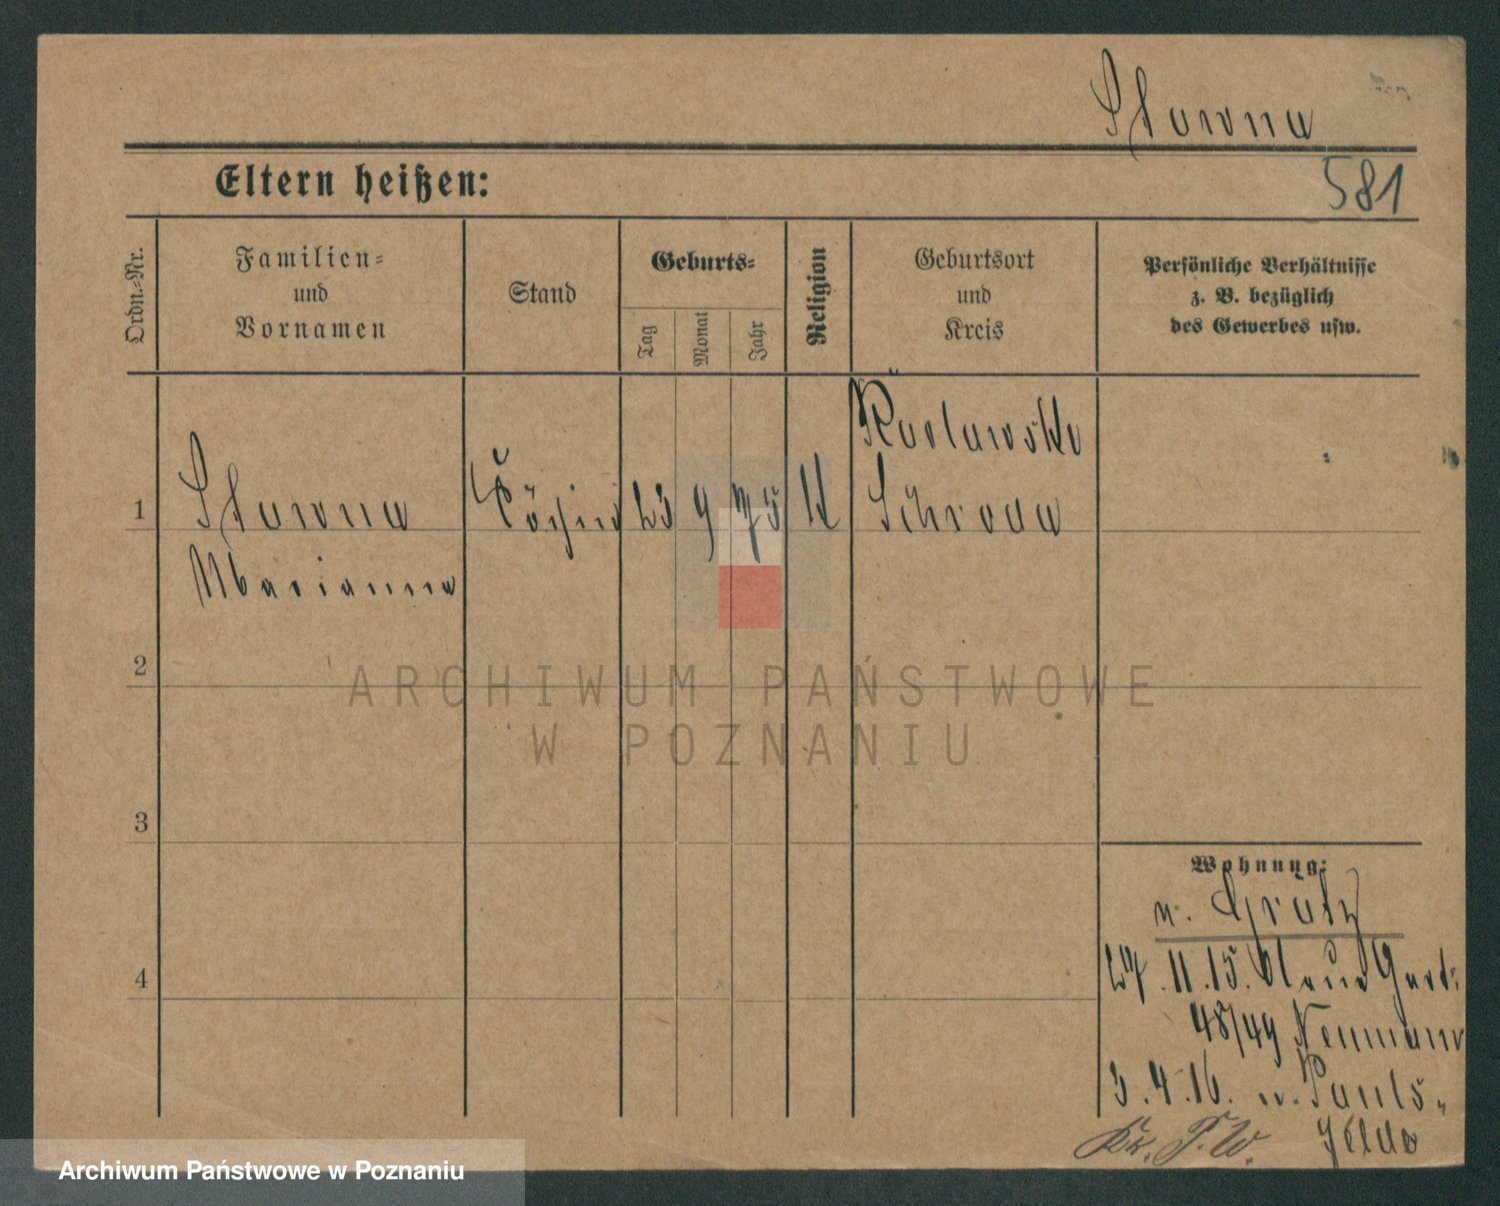 Slowna
581
Eltern heißen:
Ordn.-Nr.
Familien-
und
Vornamen
Stand
Geburts-
Tag
Monat
Jahr
Religion
Geburtsort
und
Kreis
Persönliche Verhältnisse
z. B. bezüglich
des Gewerbes usw.
1
Slowna
Marianna
Köchin
23
9
75
K
Schroda
2
ARCHIWUM PAŃSTWOWE
W POZNANIU
3
4
Wohnung:
n. Grätz
27.11.15. Neue Gart.
48/49 Neumann
3.4.16. n. Pauls-
felde
Kr. P. W.
Archiwum Państwowe w Poznaniu